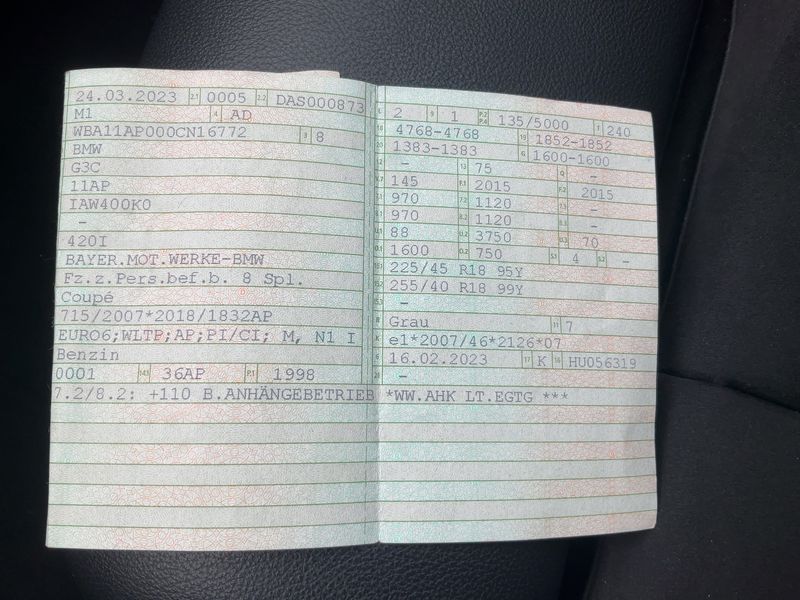 24.03.2023 2.1 0005 2.2 DAS000873
M1 4 AD
WBA11AP000CN16772 3 8
BMW
G3C
11AP
IAW400K0
–
420I
BAYER.MOT.WERKE-BMW
Fz.z.Pers.bef.b. 8 Spl.
Coupé
715/2007*2018/1832AP
EURO6;WLTP;AP;PI/CI; M, N1 I
Benzin
0001 14.1 36AP P.1 1998
L 2 9 1 P.2 P.4 135/5000 T 240
18 4768-4768 19 1852-1852
20 1383-1383 G 1600-1600
12 – 13 75 Q –
V.7 145 F.1 2015 F.2 2015
7.1 970 7.2 1120 7.3 –
8.1 970 8.2 1120 8.3 –
U.1 88 U.2 3750 U.3 70
O.1 1600 O.2 750 S.1 4 S.2 –
15.1 225/45 R18 95Y
15.2 255/40 R18 99Y
15.3 –
R Grau 11 7
K e1*2007/46*2126*07
6 16.02.2023 17 K 16 HU056319
21 –
7.2/8.2: +110 B.ANHÄNGEBETRIEB *WW.AHK LT.EGTG ***